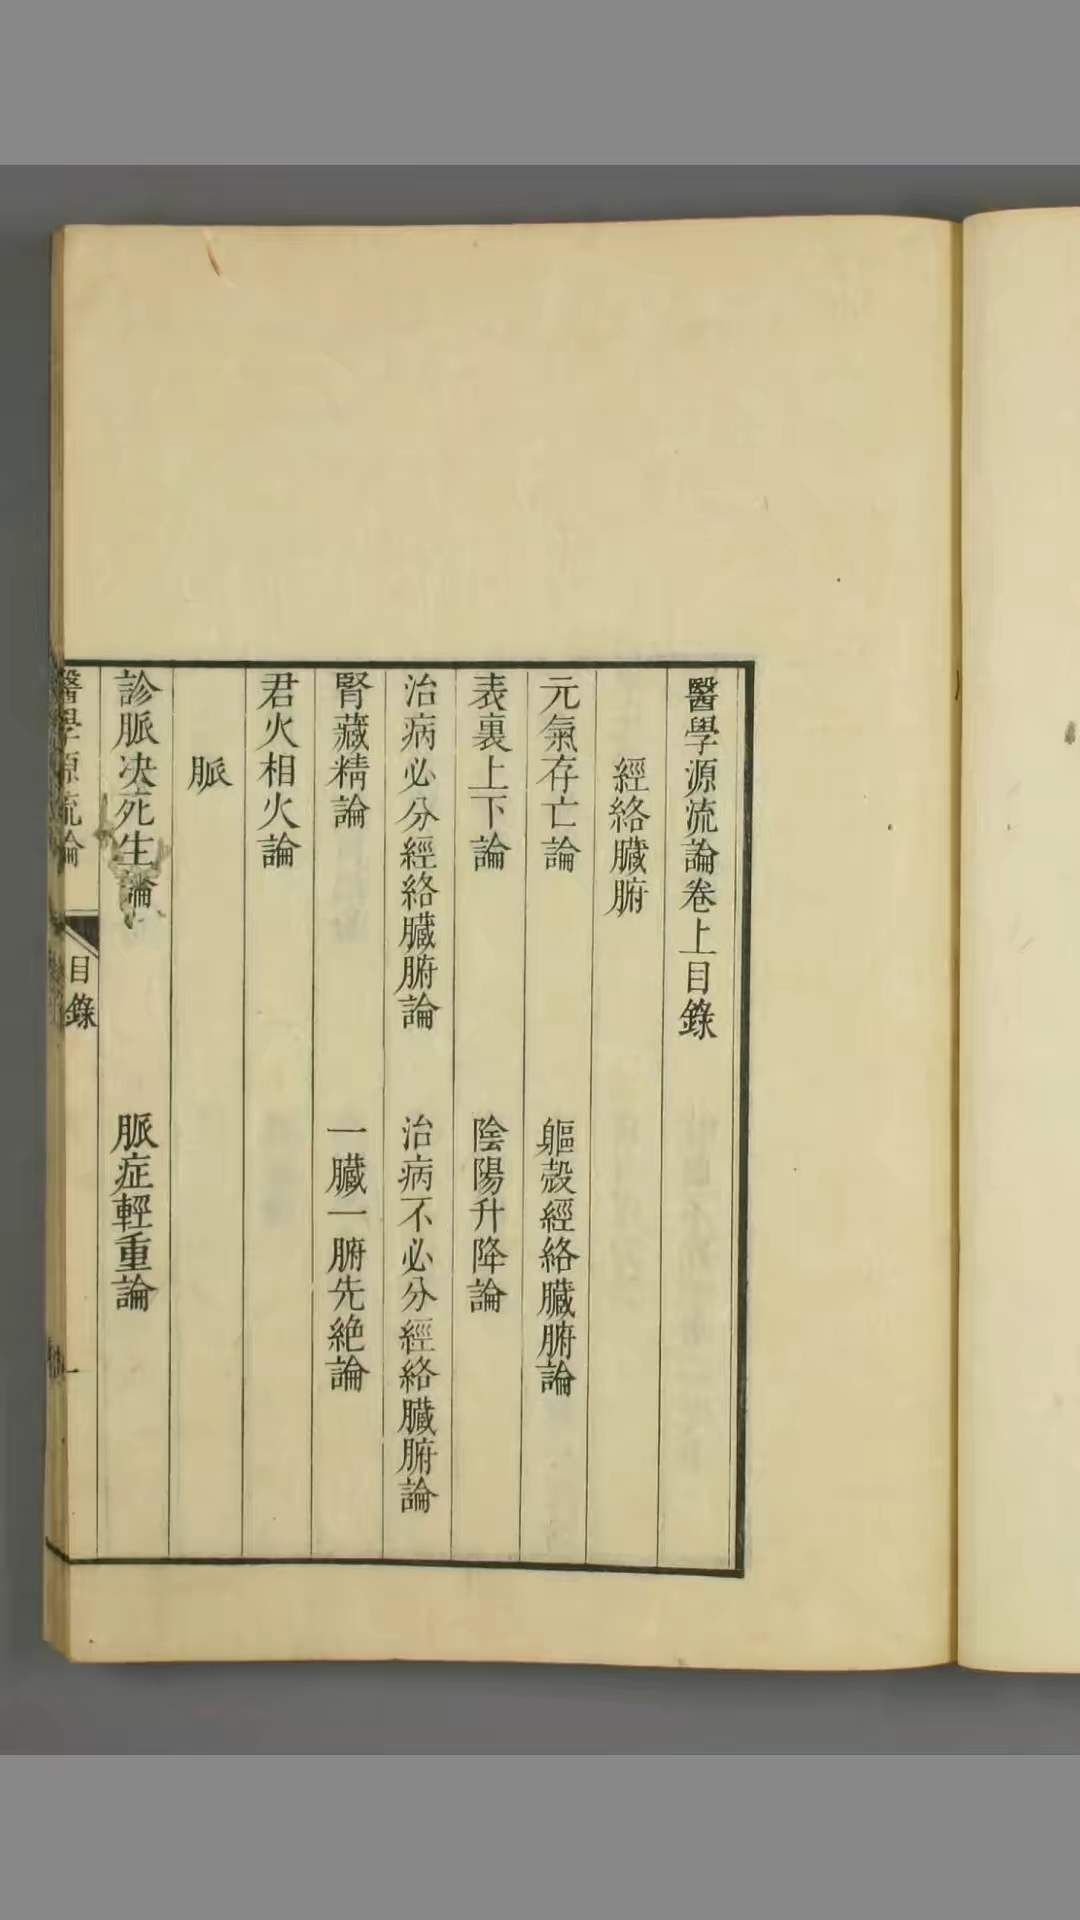 醫學源流論卷上目錄
經絡臟腑
元氣存亡論　軀殼經絡臟腑論
表裏上下論　陰陽升降論
治病必分經絡臟腑論　治病不必分經絡臟腑論
腎藏精論　一臟一腑先絶論
君火相火論
脈
診脈决死生論　脈症輕重論
醫學源流論　目錄　一